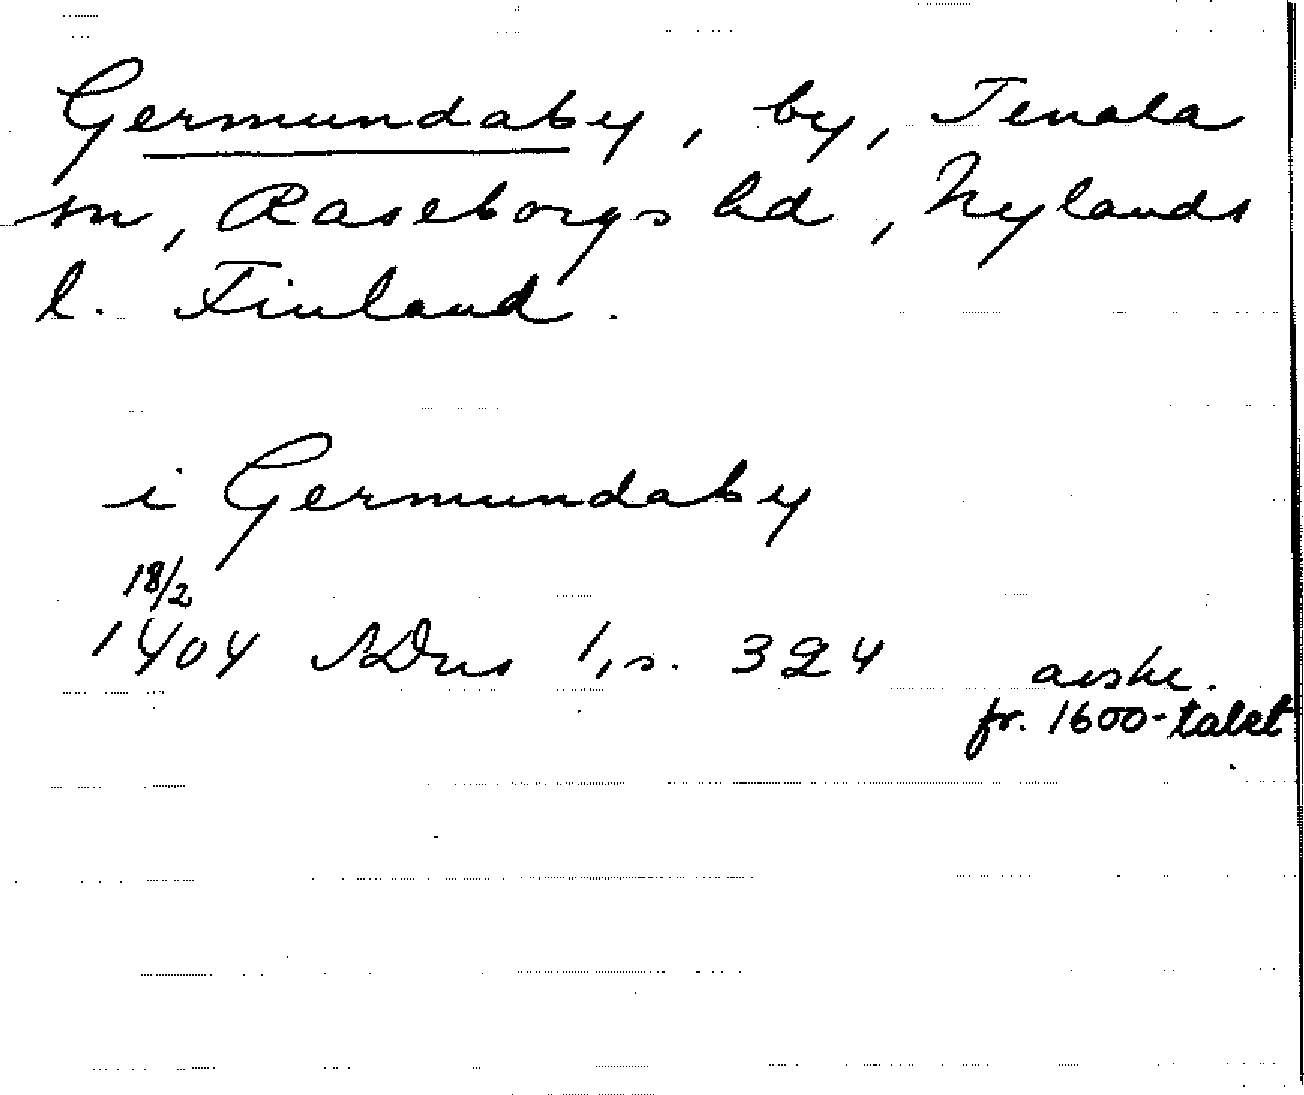 Germundaby, by, Tenala
sn, Raseborgs hd, Nylands
l. Finland.
i Germundaby
18/2
1404 SDns 1, s. 324 avskr.
fr. 1600-talet